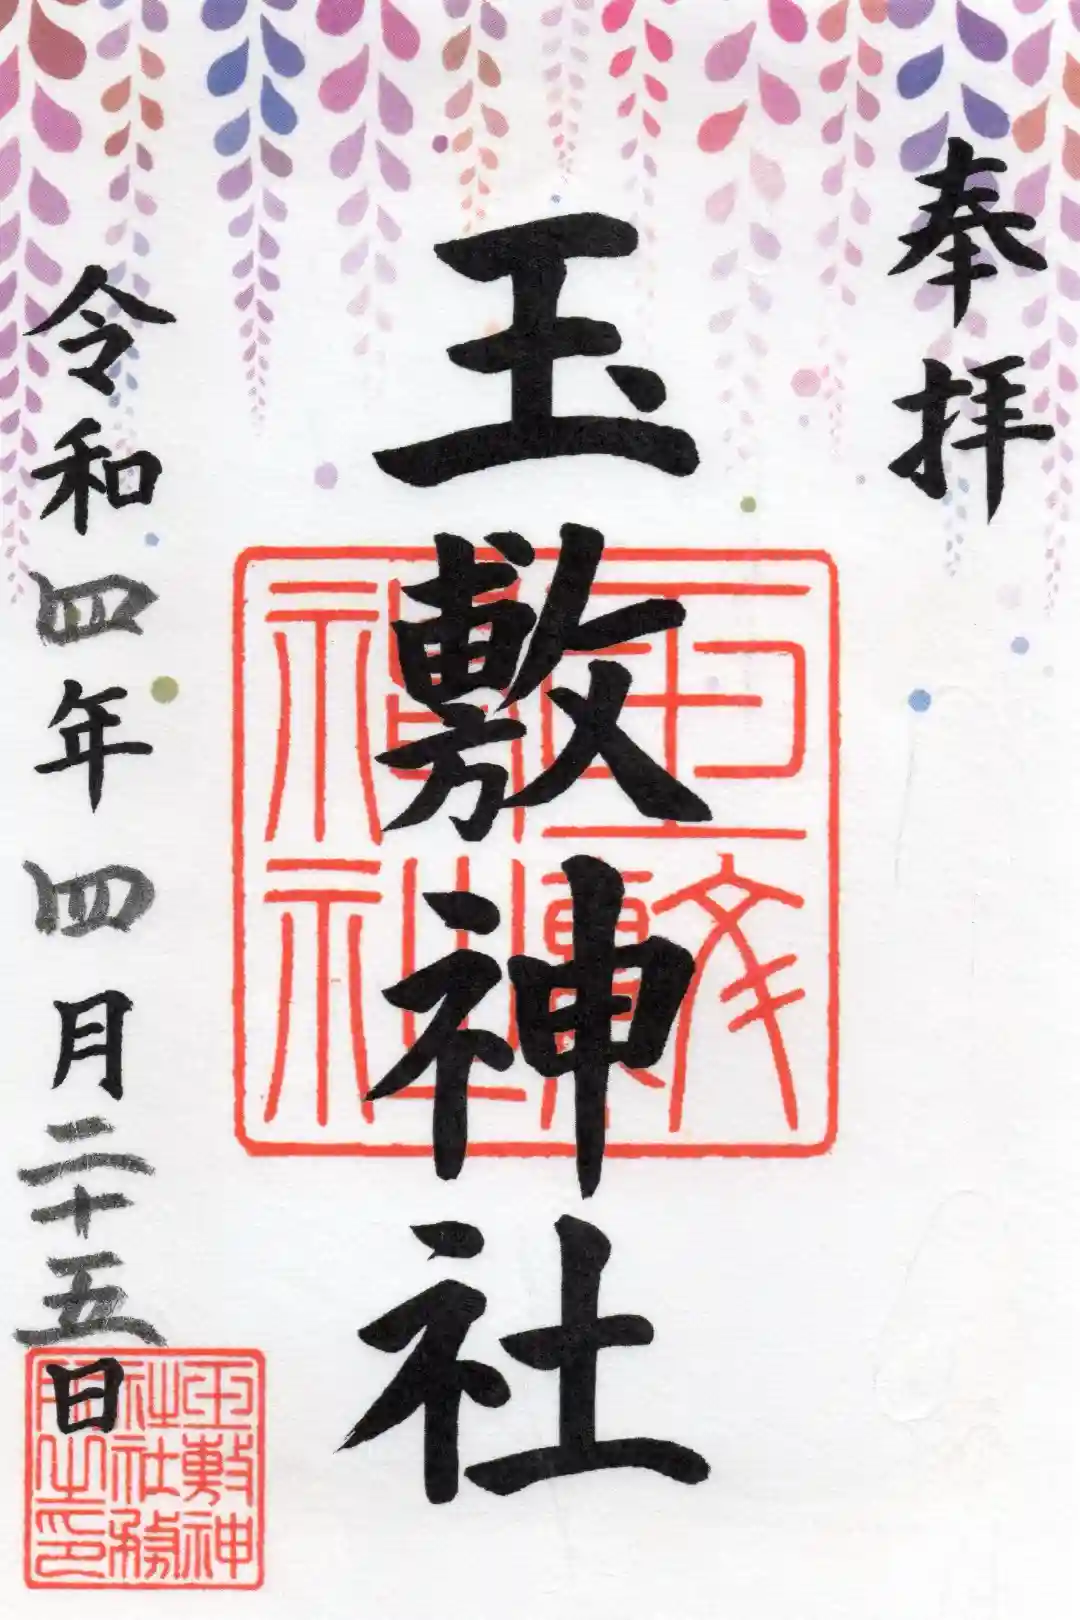 奉拝
玉敷神社
玉敷
神社
令和四年四月二十五日
玉敷神
社社務
所之印